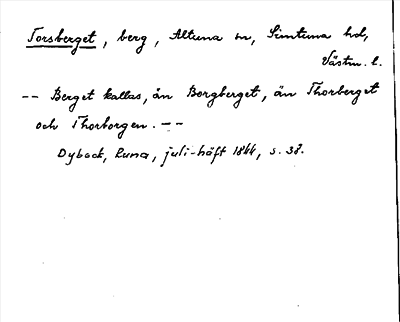 Torsberget, berg, Altuna sn, Simtuna hd,
Västm. l.
-- Berget kallas, än Borgberget, än Thorberget
och Thorborgen. --
Dybeck, Runa, juli-häft 1844, s. 38.